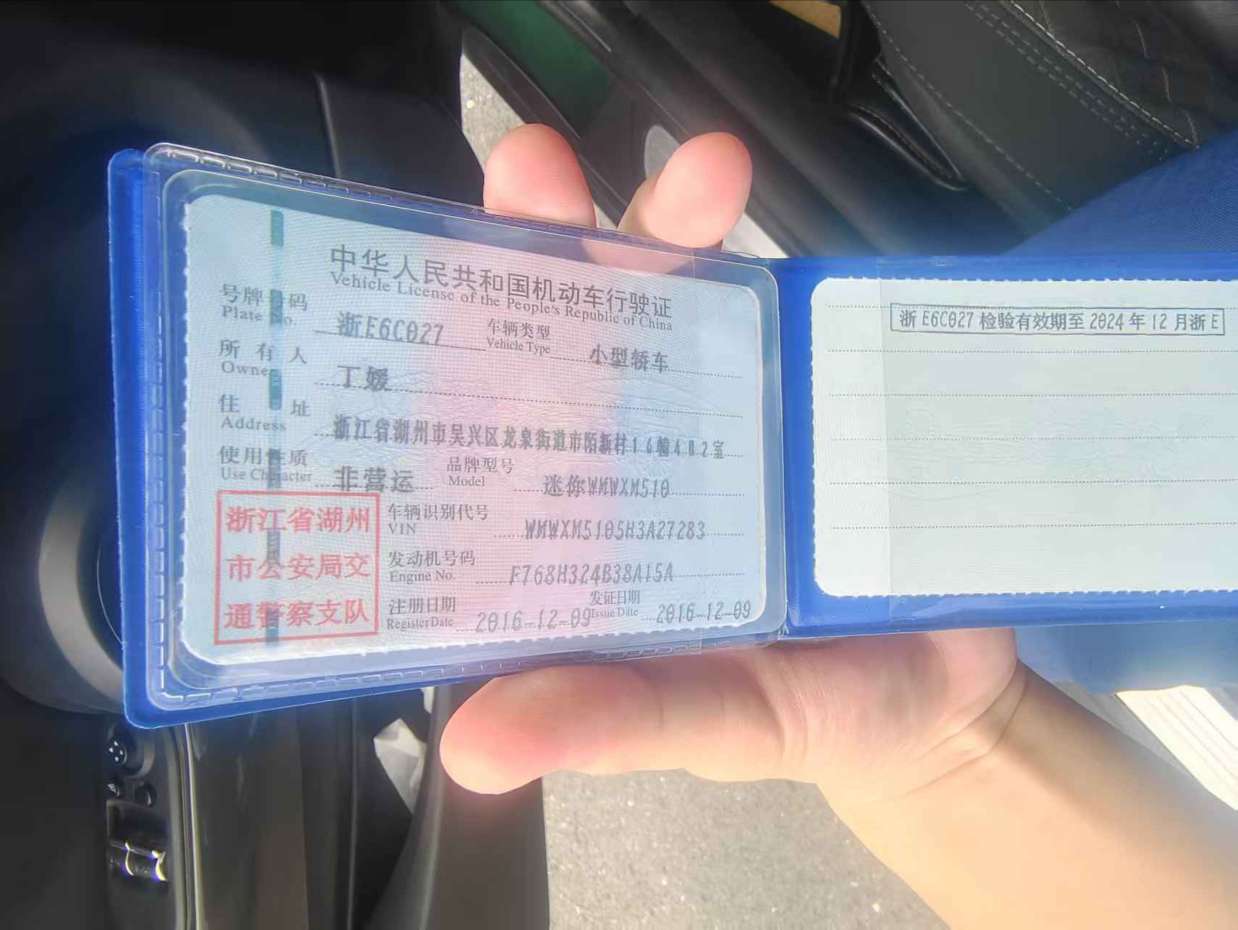 中华人民共和国机动车行驶证
Vehicle License of the People's Republic of China
号牌号码 浙E6C027 车辆类型 小型轿车
Plate No. Vehicle Type
所有人 丁媛
Owner
住址 浙江省湖州市吴兴区龙泉街道市陌新村16幢402室
Address
使用性质 非营运 品牌型号 迷你WMWXM510
Use Character Model
浙江省湖州
市公安局交
通警察支队
车辆识别代号 WMWXM5105H3A27283
VIN
发动机号码 F768H324B38A15A
Engine No.
注册日期 2016-12-09 发证日期 2016-12-09
Register Date Issue Date
浙E6C027 检验有效期至2024年12月浙E